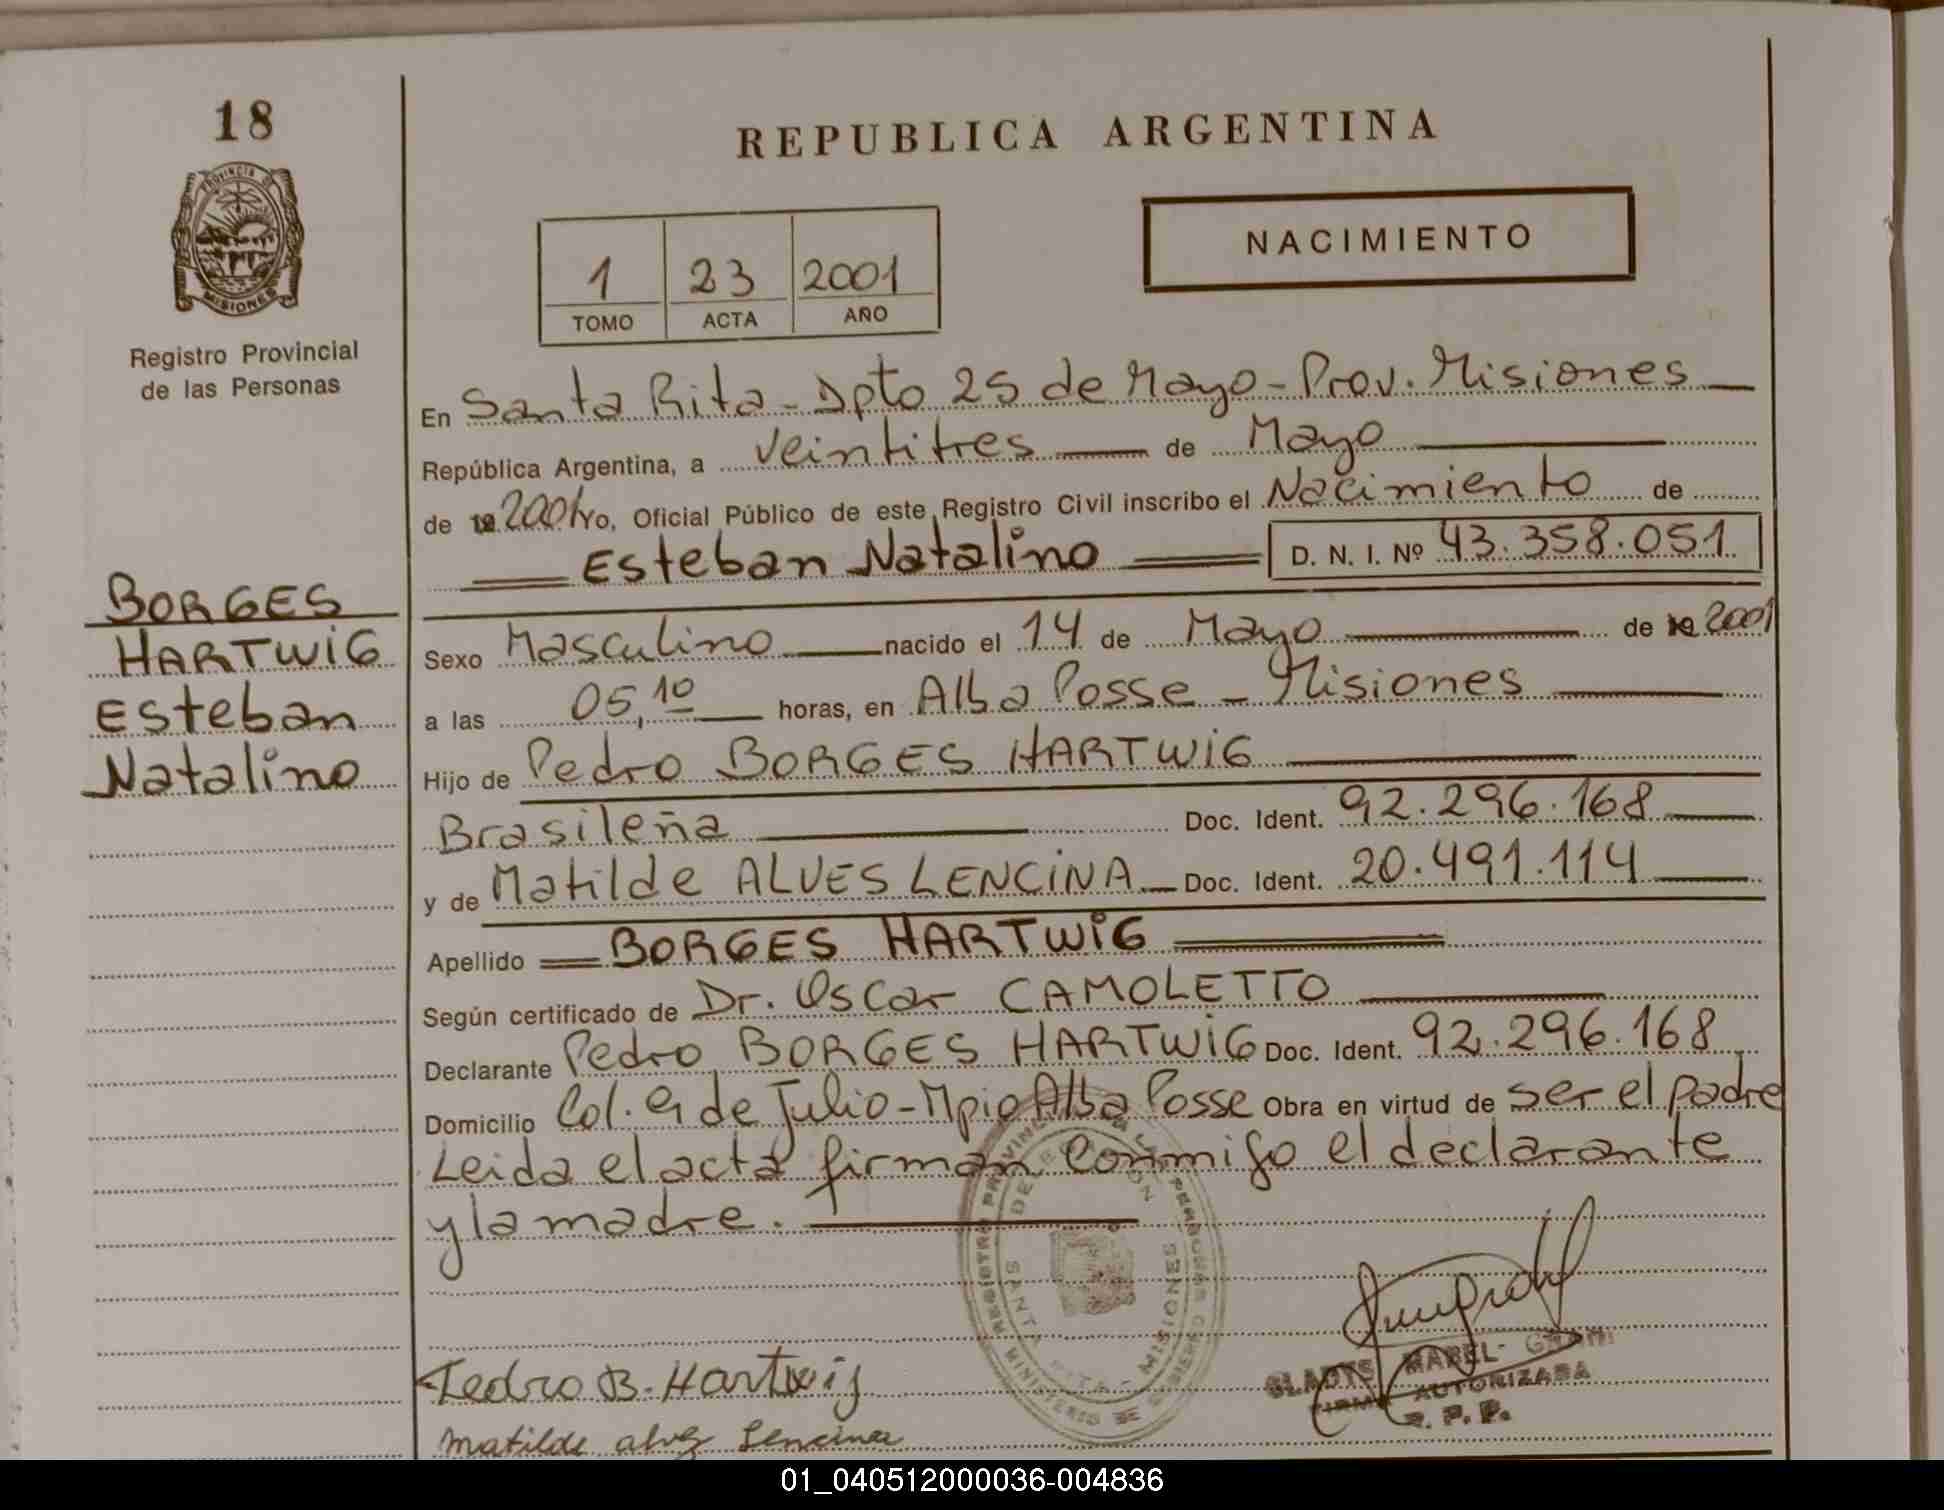 18
PROVINCIA DE
MISIONES
Registro Provincial
de las Personas
BORGES
HARTWIG
Esteban
Natalino
REPUBLICA ARGENTINA
1 23 2001
TOMO ACTA AÑO
NACIMIENTO
En Santa Rita - Dpto 25 de Mayo - Prov. Misiones
República Argentina, a veintitres de Mayo
de 19 2001 yo, Oficial Público de este Registro Civil inscribo el Nacimiento de
Esteban Natalino D. N. I. Nº 43.358.051
Sexo Masculino nacido el 14 de Mayo de 19 2001
a las 05,10 horas, en Alba Posse - Misiones
Hijo de Pedro BORGES HARTWIG
Brasileña Doc. Ident. 92.296.168
y de Matilde ALVES LENCINA Doc. Ident. 20.491.114
Apellido BORGES HARTWIG
Según certificado de Dr. Oscar CAMOLETTO
Declarante Pedro BORGES HARTWIG Doc. Ident. 92.296.168
Domicilio Col. 9 de Julio - Mpio Alba Posse Obra en virtud de ser el padre
Leida el acta firman conmigo el declarante
y la madre.
REGISTRO PROVINCIAL DE LAS PERSONAS
MINISTERIO DE GOBIERNO
DELEGACION
SANTA RITA - MISIONES
Pedro B. Hartwig
GLADYS MABEL
FIRMA AUTORIZADA
R. P. P.
Matilde alvez Lencina
01_040512000036-004836